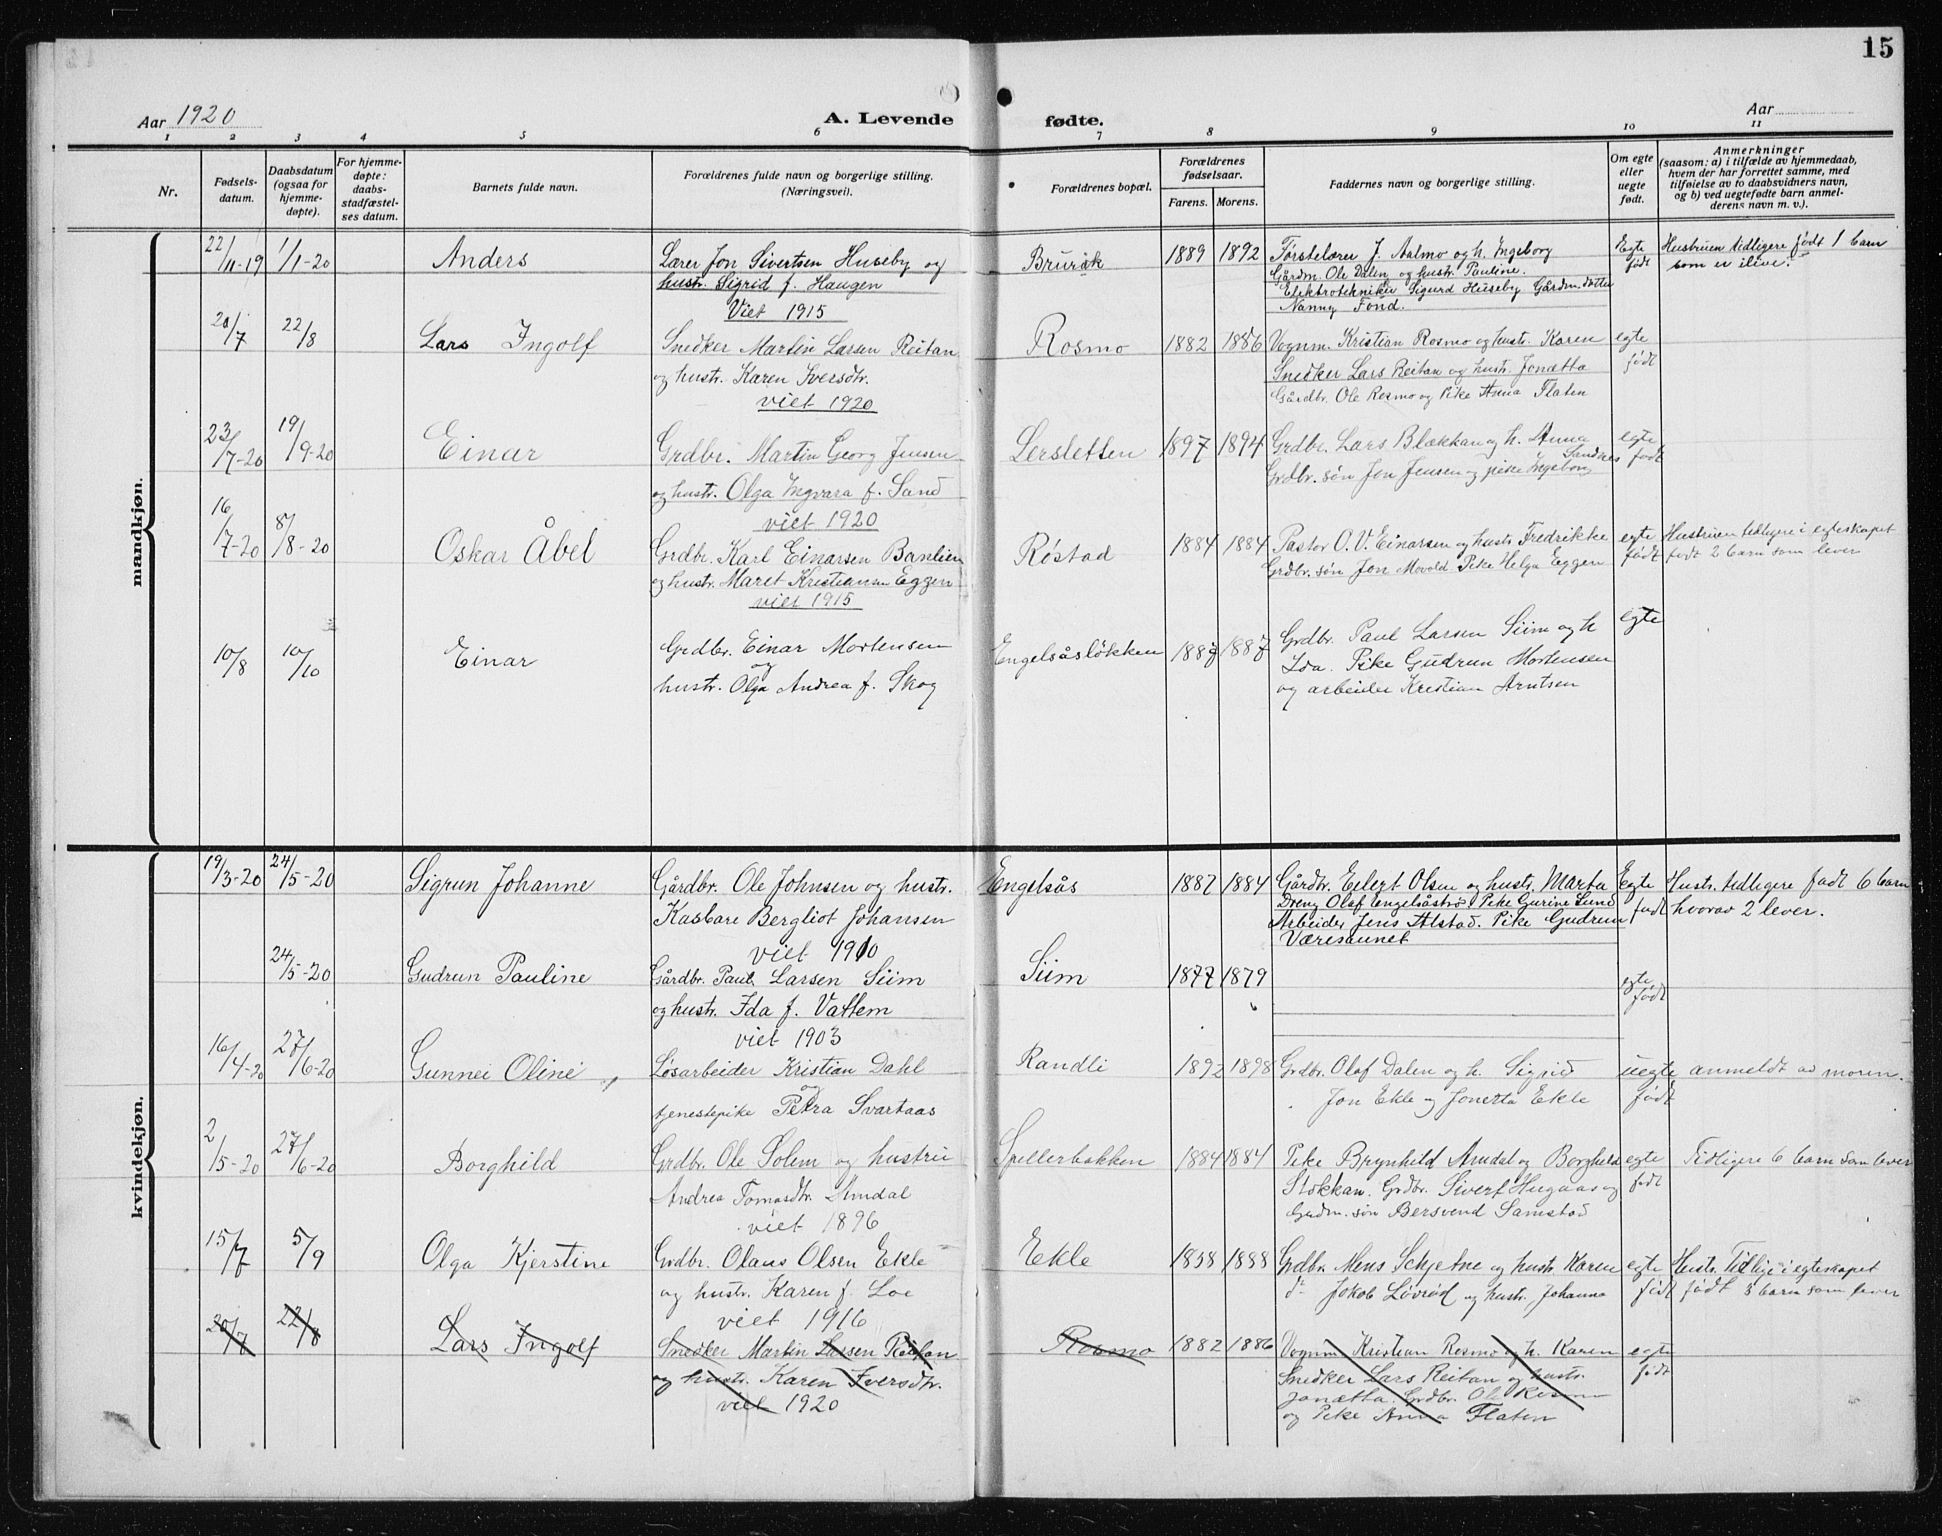 15
Aar 1920
A. Levende
fødte.
Aar
1 2 3 4 5 6 7 8 9 10 11
Nr.
Fødsels-
datum.
Daabsdatum
(ogsaa for
hjemme-
døpte).
For hjemme-
døpte:
daabs-
stadfæstel-
ses datum.
Barnets fulde navn.
Forældrenes fulde navn og borgerlige stilling.
(Næringsvei).
Forældrenes bopæl.
Forældrenes
fødselsaar.
Farens. Morens.
Faddernes navn og borgerlige stilling.
Om egte
eller
uegte
født.
Anmerkninger
(saasom: a) i tilfælde av hjemmedaab,
hvem der har forrettet samme, med
tilføielse av to daabsvidners navn,
og b) ved uegtefødte barn anmel-
derens navn m. v.).
mandkjøn.
22/11-19 1/1-20 Anders
Lærer Jon Sivertsen Huseby og
hustr. Sigrid f. Haugen
Viet 1915
Brurak 1889 1892
Førstelærer J. Aalmo og h. Ingeborg
Gårdm. Ole Dalen og hustr. Pauline.
Elektrotekniker Sigurd Huseby Gårdm.datter
Nanny Fond.
Egte
født
Hustruen tidligere født 1 barn
som er ilive.
20/7 22/8 Lars Ingolf
Snedker Martin Larsen Reitan
og hustr. Karen Iversdtr.
viet 1920
Rosmo 1882 1886
Vognm. Kristian Rosmo og hustr. Karen
Snedker Lars Reitan og hustr. Jonætta
Gårdbr. Ole Rosmo og Pike Anna Flaten
egte
født
23/7-20 19/9-20 Einar
Grdbr. Martin Georg Jensen
og hustr. Olga Ingvara f. Sand
viet 1920
Lersletten 1897 1894
Grdbr. Lars Blækkan og h. Anna
Grdbr. søn Jon Jensen og pike Ingeborg Sandnes
egte
født
16/7-20 8/8-20 Oskar Åbel
Grdbr. Karl Einarsen Banlien
og hustr. Maret Kristiansen Eggen
viet 1915
Røstad 1884 1884
Pastor O. V. Einarsen og hustr. Fredrikke
Grdbr. søn Jon Movold Pike Helga Eggen
egte
født
Hustruen tidligere i egteskapet
født 2 barn som lever
10/8 10/10 Einar
Grdbr. Einar Mortensen
og
hustr. Olga Andrea f. Skog
Engelsåsløkken 1887 1887
Grdbr. Paul Larsen Siim og h
Ida. Pike Gudrun Mortensen
og arbeider Kristian Arntsen
egte
kvindekjøn.
19/3-20 24/5-20 Sigrun Johanne
Gårdbr. Ole Johnsen og hustr.
Kasbare Bergliot Johansen
viet 1910
Engelsås 1887 1884
Gårdbr. Eilert Olsen og hustr. Marta
Dreng Olaf Engelsåstrø Pike Gurine Lund
Arbeider Jens Alstad. Pike Gudrun
Væresaunet
Egte
født
Hustr. tidligere født 6 barn
hvorav 2 lever.
24/5-20 Gudrun Pauline
Gårdbr. Paul Larsen Siim
og hustr. Ida f. Vattem
viet 1903
Siim 1877 1879
egte
født
16/4-20 27/6-20 Gunnei Oline
Løsarbeider Kristian Dahl
og
tjenestepike Petra Svartaas
Randli 1892 1898
Grdbr. Olaf Dalen og h. Sigrid
Jon Ekle og Jonetta Ekle
uegte
født
anmeldt av moren.
2/5-20 27/6-20 Borghild
Grdbr. Ole Solem og hustru
Andrea Tomasdtr. Amdal
viet 1896
Spellerbakken 1884 1884
Pike Brynhild Amdal og Borghild
Stokkan. Grdbr. Sivert Hugaas og
Gudm. søn Bersvend Samstad
egte
født
Tidligere 6 barn som lever
15/7 5/9 Olga Kjerstine
Grdbr. Olaus Olsen Ekle
og hustr. Karen f. Loe
viet 1916
Ekle 1888 1888
Grdbr. Mens Schjetne og hustr. Karen
d: Jakob Løvrød og hustr. Johanna
egte
født
Hustr. Tidlige i egteskapet
født 8 barn som lever
20/7 22/8 Lars Ingolf
Snedker Martin Larsen Reitan
og hustr. Karen Iversdtr.
viet 1920
Rosmo 1882 1886
Vognm. Kristian Rosmo og h. Karen
Snedker Lars Reitan og hustr.
Jonætta. Grdbr. Ole Rosmo
og Pike Anna Flaten
egte
født